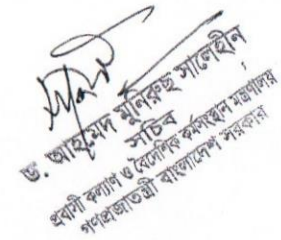 ড. আহমেদ মুনিরুছ সালেহীন
সচিব
প্রবাসী কল্যাণ ও বৈদেশিক কর্মসংস্থান মন্ত্রণালয়
গণপ্রজাতন্ত্রী বাংলাদেশ সরকার